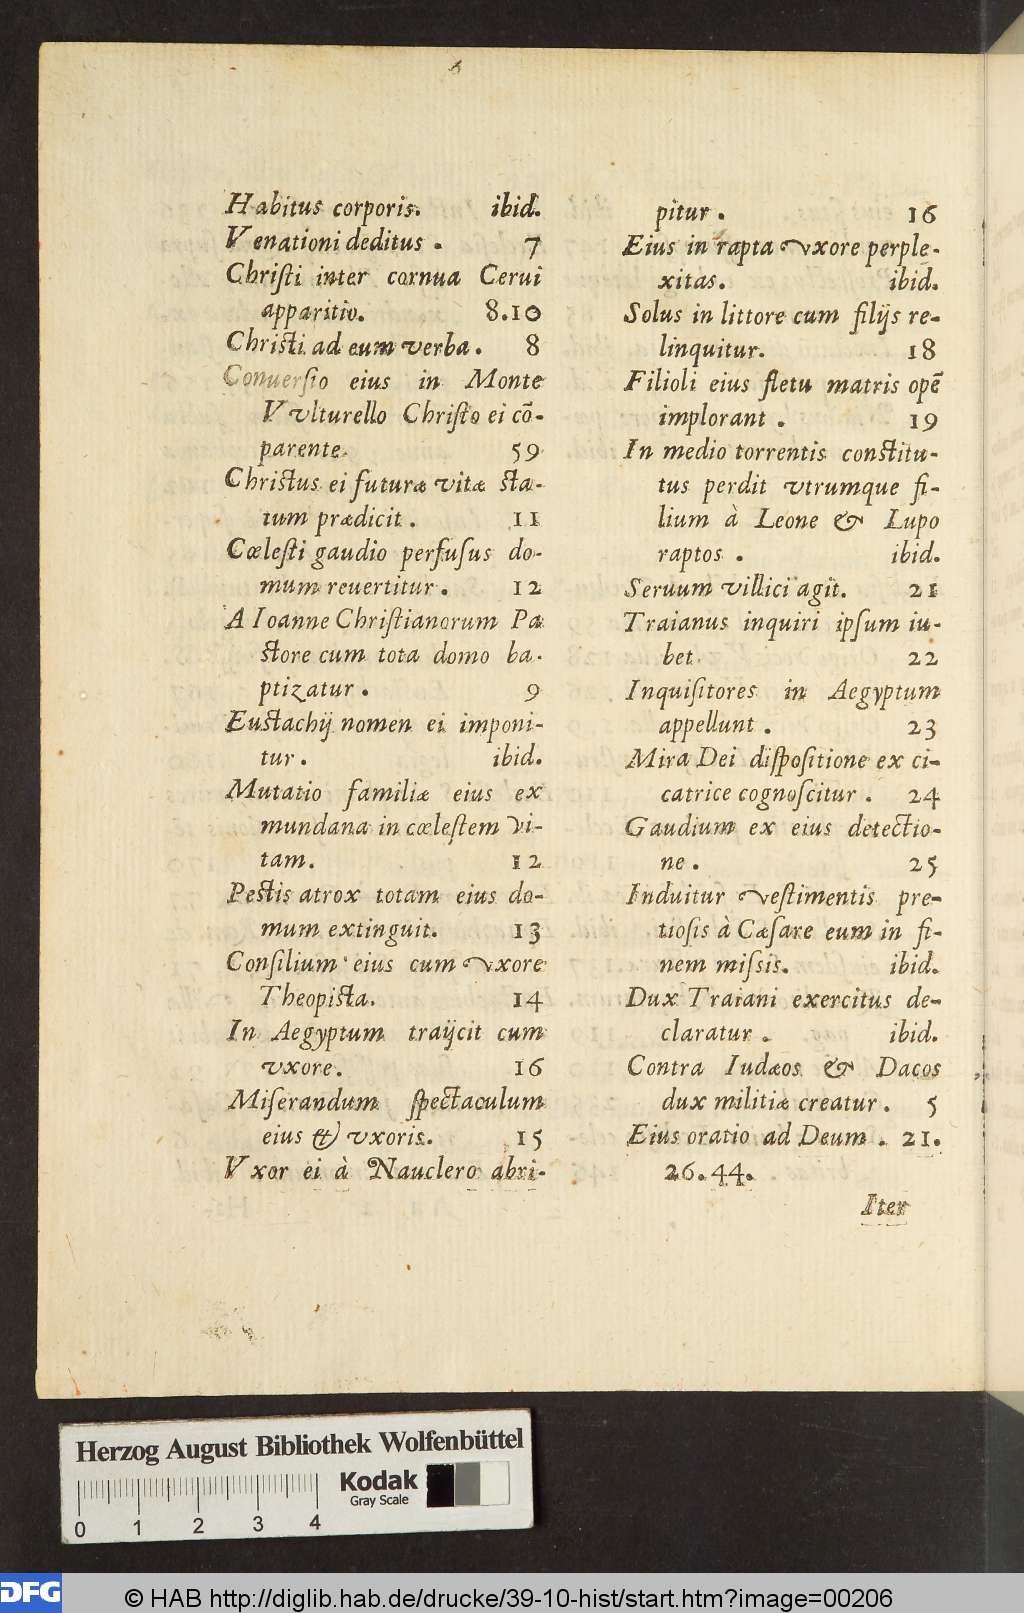 Habitus corporis. ibid.
Venationi deditus. 7
Chriſti inter cornua Cerui
apparitio. 8.10
Chriſti ad eum verba. 8
Conuerſio eius in Monte
Vvlturello Chriſto ei cō-
parente. 59
Chriſtus ei futuræ vitæ ſta-
tum prædicit. 11
Cœleſti gaudio perfuſus do-
mum reuertitur. 12
A Ioanne Chriſtianorum Pa
ſtore cum tota domo ba-
ptizatur. 9
Euſtachij nomen ei imponi-
tur. ibid.
Mutatio familiæ eius ex
mundana in cœleſtem vi-
tam. 12
Peſtis atrox totam eius do-
mum extinguit. 13
Conſilium eius cum vxore
Theopiſta. 14
In Aegyptum traijcit cum
vxore. 16
Miſerandum ſpectaculum
eius & vxoris. 15
Vxor ei à Nauclero abri-
pitur. 16
Eius in rapta vxore perple-
xitas. ibid.
Solus in littore cum filijs re-
linquitur. 18
Filioli eius fletu matris opē
implorant. 19
In medio torrentis conſtitu-
tus perdit vtrumque fi-
lium à Leone & Lupo
raptos. ibid.
Seruum villici agit. 21
Traianus inquiri ipſum iu-
bet. 22
Inquiſitores in Aegyptum
appellunt. 23
Mira Dei diſpoſitione ex ci-
catrice cognoſcitur. 24
Gaudium ex eius detectio-
ne. 25
Induitur veſtimentis pre-
tioſis à Cæſare eum in fi-
nem miſsis. ibid.
Dux Traiani exercitus de-
claratur. ibid.
Contra Iudæos & Dacos
dux militiæ creatur. 5
Eius oratio ad Deum. 21.
26.44.
Iter
Herzog August Bibliothek Wolfenbüttel
Kodak
Gray Scale
0 1 2 3 4
DFG
© HAB http://diglib.hab.de/drucke/39-10-hist/start.htm?image=00206